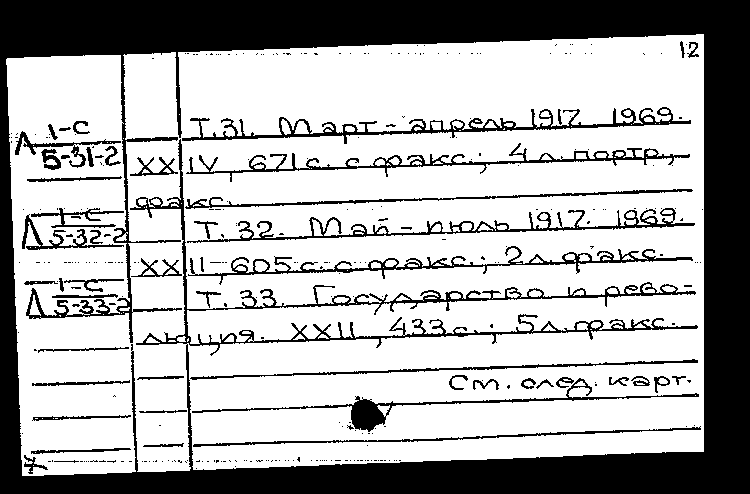 12
Т.31. Март - апрель 1917. 1969.
Л 1-С
5-31-2
XXIV, 671с. с факс.; 4 л. портр.,
факс.
Л 1-С
5-32-2
Т. 32. Май - июль 1917. 1969.
XXII, 605 с. с факс.; 2 л. факс.
Л 1-С
5-33-2
Т. 33. Государство и рево-
люция. XXII, 433 с.; 5 л. факс.
См. след. карт.